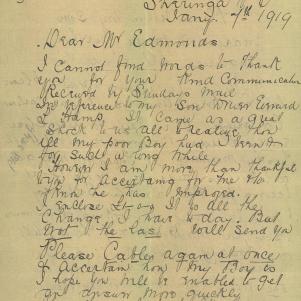 Sheringa
Jany 7th 1919
Dear Mr Edmonds
I Cannot find words to Thank
you for your Kind Communication
Received by Sundays Mail
In reference to my Son Driver Edward
Hamp. It Came as a great
Shock to us all to realize how
Ill my poor Boy had been
for Such a long while
However I am more than thankful
to you for Accertaing for me
he has Improved.
I Enclose is all the
Change I have to day. But
Not the Last Will Send you
Please Cable again at once
& Accertain how My Boy is
I hope you will be Enabled to get
an answer More quickly